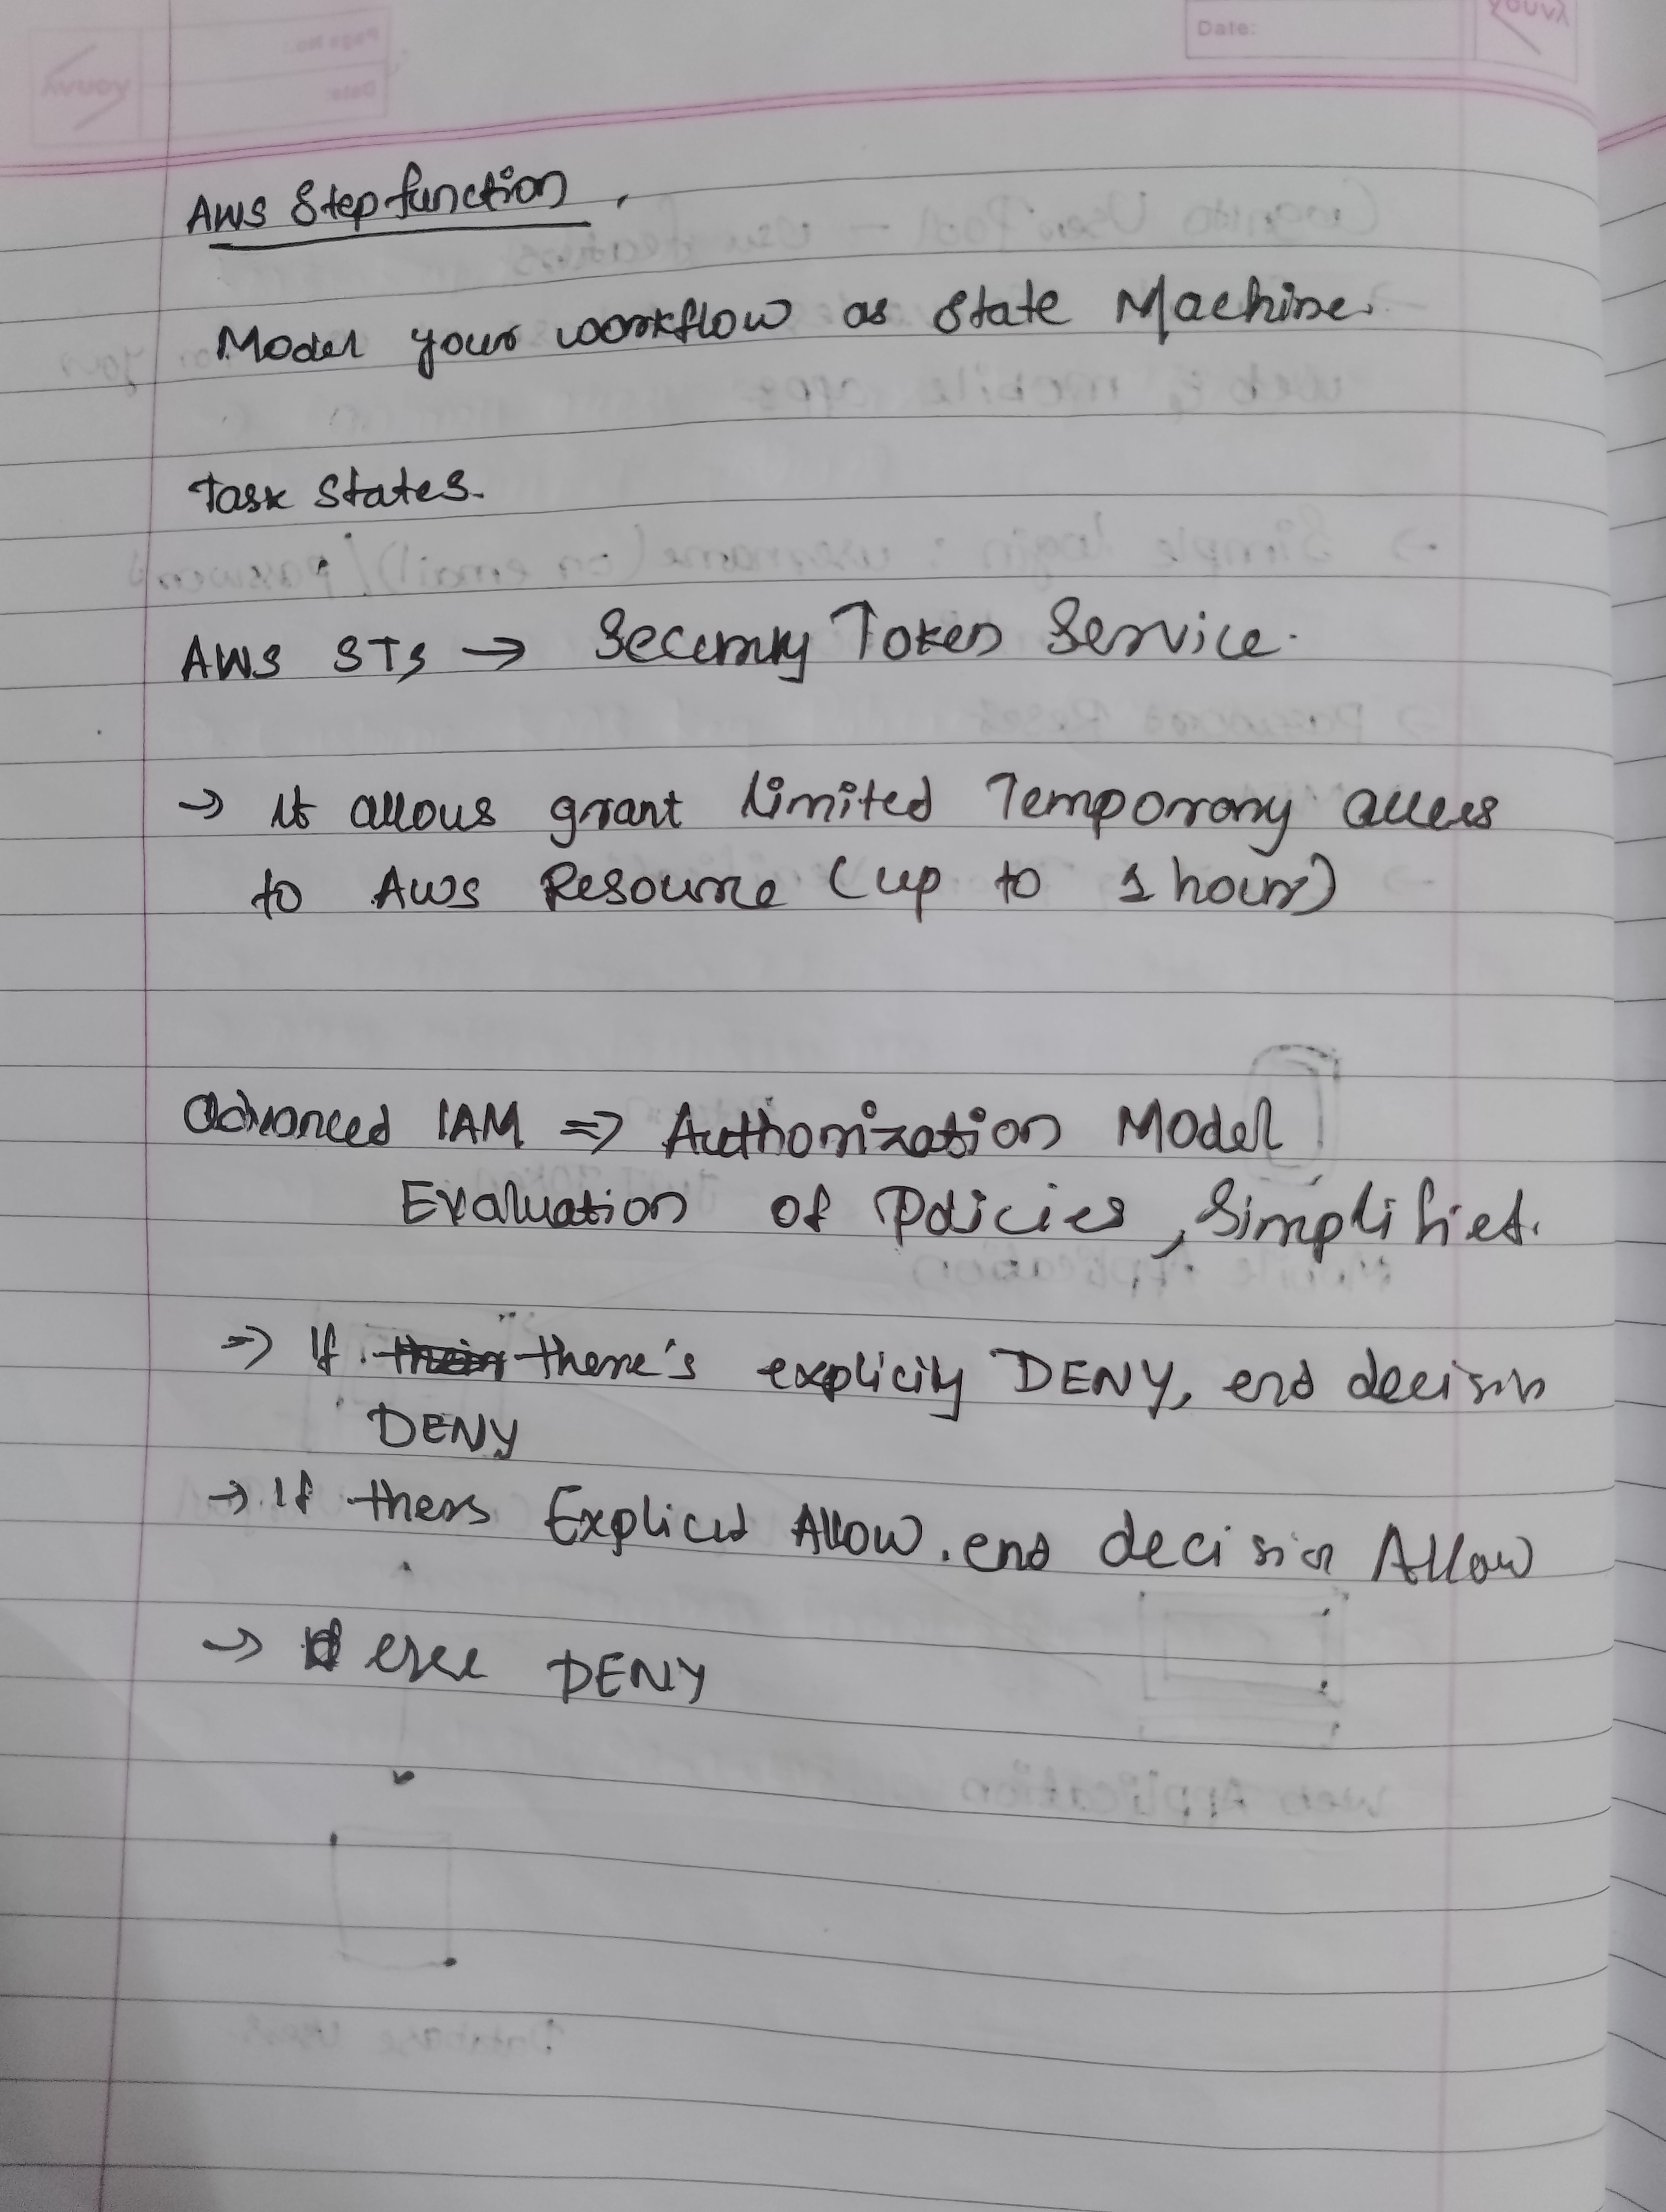 Date:
AWS Step function.
Model your workflow as State Machine.
Task States.
AWS STS → Security Token Service.
→ it allous grant limited Temporary access
to AWS Resource (up to 1 hour)
Advanced IAM ⇒ Authorization Model
Evaluation of Policies, Simplified.
⇒ If there's explicity DENY, end decision
DENY
→ If thers Explicit Allow. end decision Allow
→ else DENY